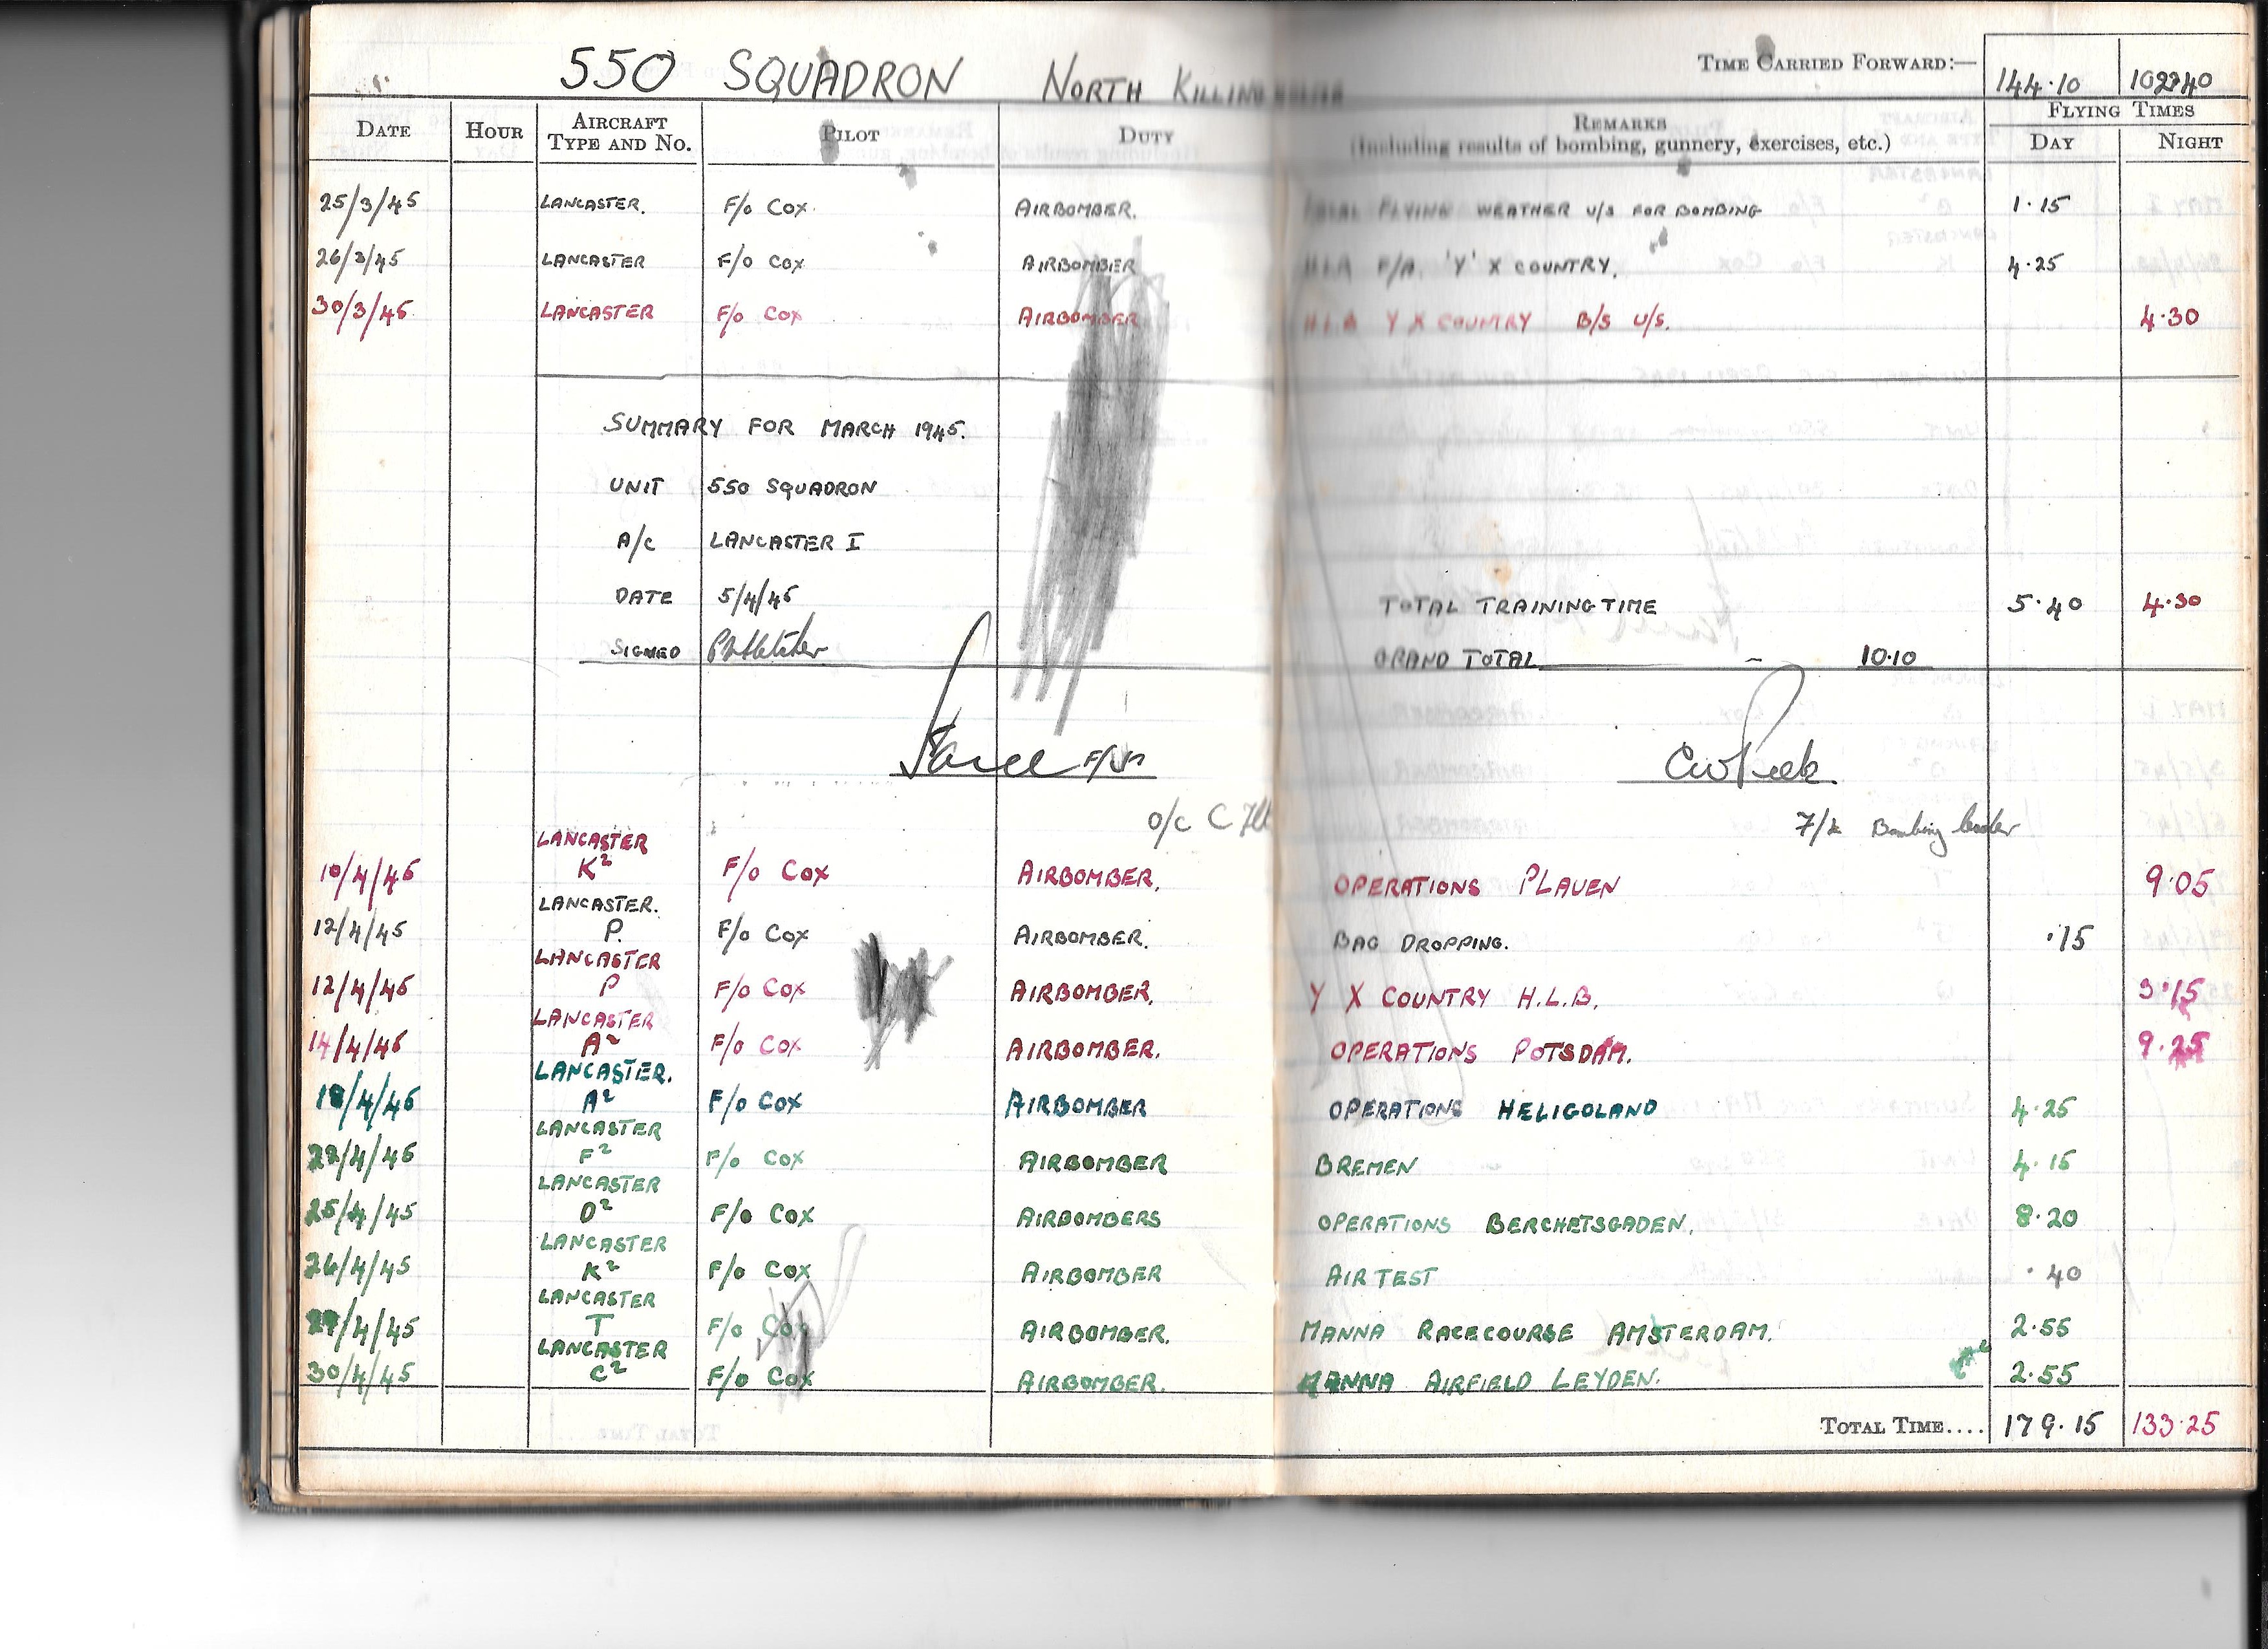 550 SQUADRON NORTH KILLINGHOLME
TIME CARRIED FORWARD:— 144·10 102240
DATE HOUR AIRCRAFT TYPE AND NO. PILOT DUTY REMARKS (Including results of bombing, gunnery, exercises, etc.) FLYING TIMES DAY NIGHT
25/3/45 LANCASTER. F/o COX. AIRBOMBER. FLYING WEATHER U/S FOR BOMBING 1·15
26/3/45 LANCASTER F/o COX AIRBOMBER F/A. 'Y' X COUNTRY. 4·25
30/3/45 LANCASTER F/o COX AIRBOMBER H.L.B Y X COUNTRY B/S U/S. 4·30
SUMMARY FOR MARCH 1945.
UNIT 550 SQUADRON
A/C LANCASTER I
DATE 5/4/45 TOTAL TRAINING TIME 5·40 4·30
SIGNED GRAND TOTAL 10·10
CW Peek
O/C C 7/L Bombing leader
10/4/45 LANCASTER K² F/o COX AIRBOMBER. OPERATIONS PLAUEN 9·05
12/4/45 LANCASTER. P. F/o COX AIRBOMBER. BAG DROPPING. ·15
12/4/45 LANCASTER P F/o COX AIRBOMBER. Y X COUNTRY H.L.B. 3·15
14/4/45 LANCASTER A² F/o COX AIRBOMBER. OPERATIONS POTSDAM. 9·25
18/4/45 LANCASTER. A² F/o COX AIRBOMBER OPERATIONS HELIGOLAND 4·25
22/4/45 LANCASTER F² F/o COX AIRBOMBER BREMEN 4·15
25/4/45 LANCASTER D² F/o COX AIRBOMBERS OPERATIONS BERCHETSGADEN. 8·20
26/4/45 LANCASTER K² F/o COX AIRBOMBER AIR TEST ·40
29/4/45 LANCASTER T F/o COX AIRBOMBER. MANNA RACECOURSE AMSTERDAM. 2·55
30/4/45 LANCASTER C² F/o COX AIRBOMBER. MANNA AIRFIELD LEYDEN. 2·55
TOTAL TIME.... 179·15 133·25